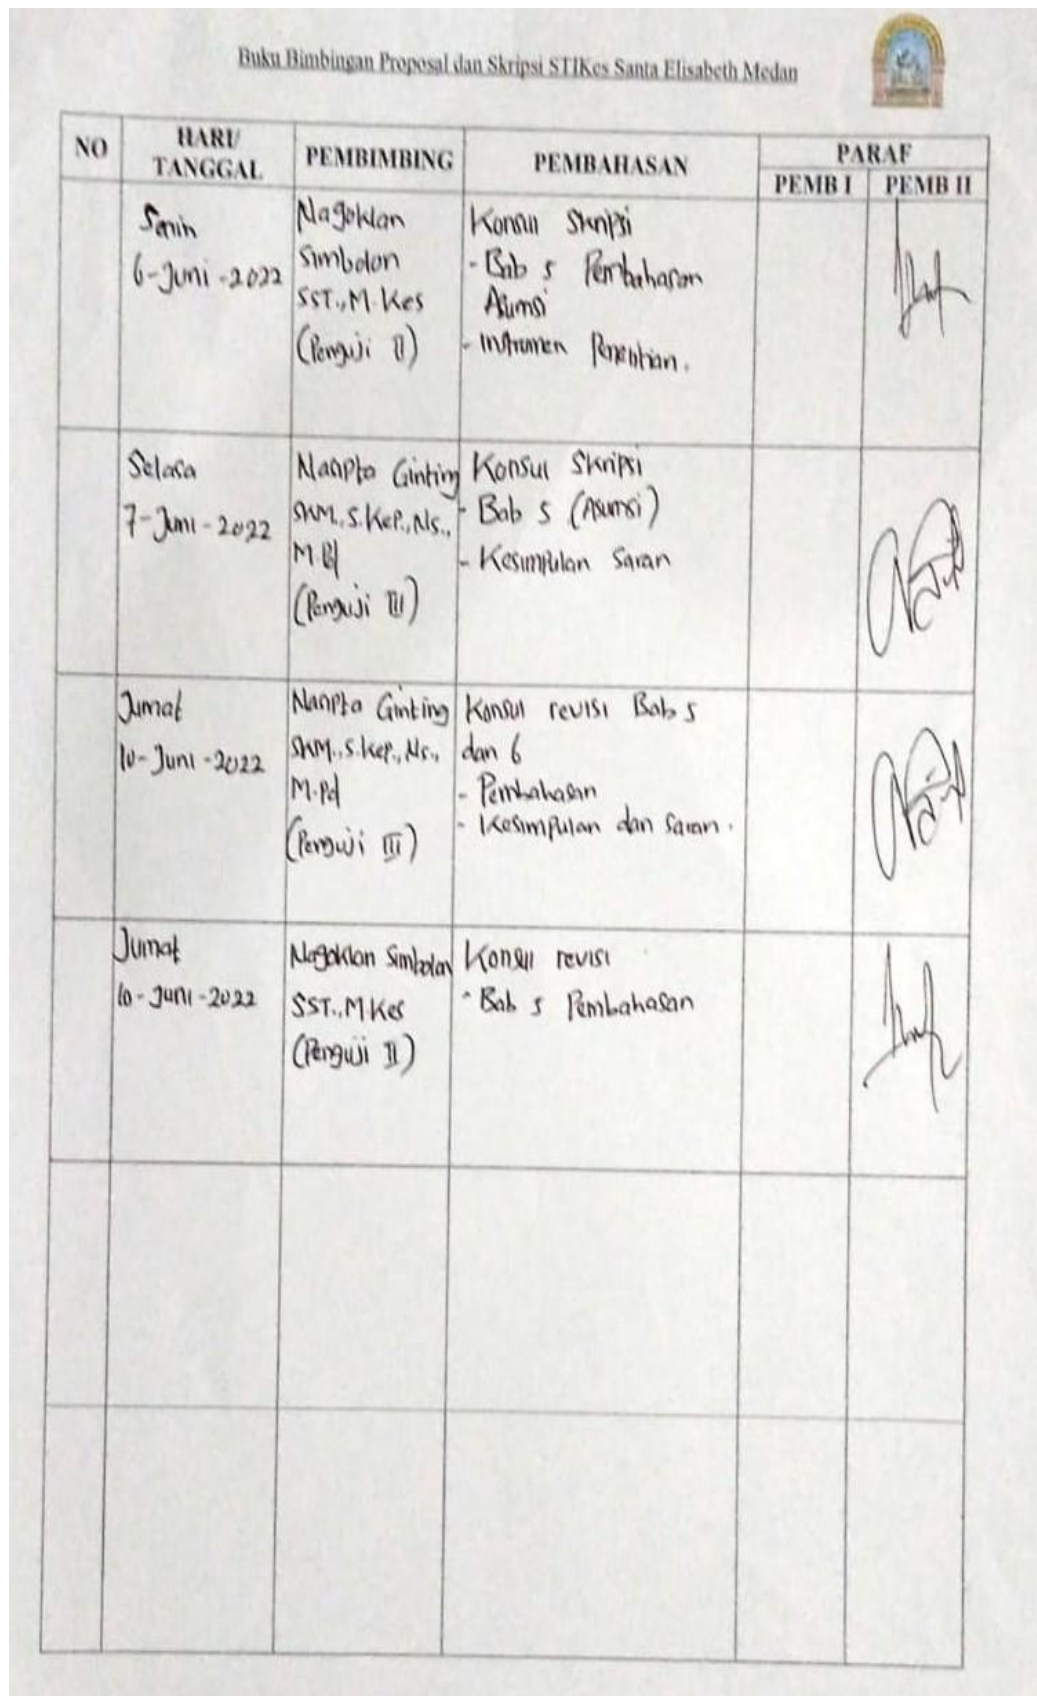 Buku Bimbingan Proposal dan Skripsi STIKes Santa Elisabeth Medan
NO
HARI/
TANGGAL
PEMBIMBING
PEMBAHASAN
PARAF
PEMB I
PEMB II
Senin
6-Juni-2022
Nagoklan
Simbolon
SST., M.Kes
(Penguji II)
Konsul Skripsi
- Bab 5 Pembahasan
Asumsi
- Instrumen Penelitian.
Selasa
7-Juni-2022
Nanpto Ginting
SKM., S.Kep., Ns.,
M.Pd
(Penguji III)
Konsul Skripsi
- Bab 5 (Asumsi)
- Kesimpulan Saran
Jumat
10-Juni-2022
Nanpto Ginting
SKM., S.Kep., Ns.,
M.Pd
(Penguji III)
Konsul revisi Bab 5
dan 6
- Pembahasan
- Kesimpulan dan Saran.
Jumat
10-Juni-2022
Nagoklan Simbolon
SST., M.Kes
(Penguji II)
Konsul revisi
- Bab 5 Pembahasan